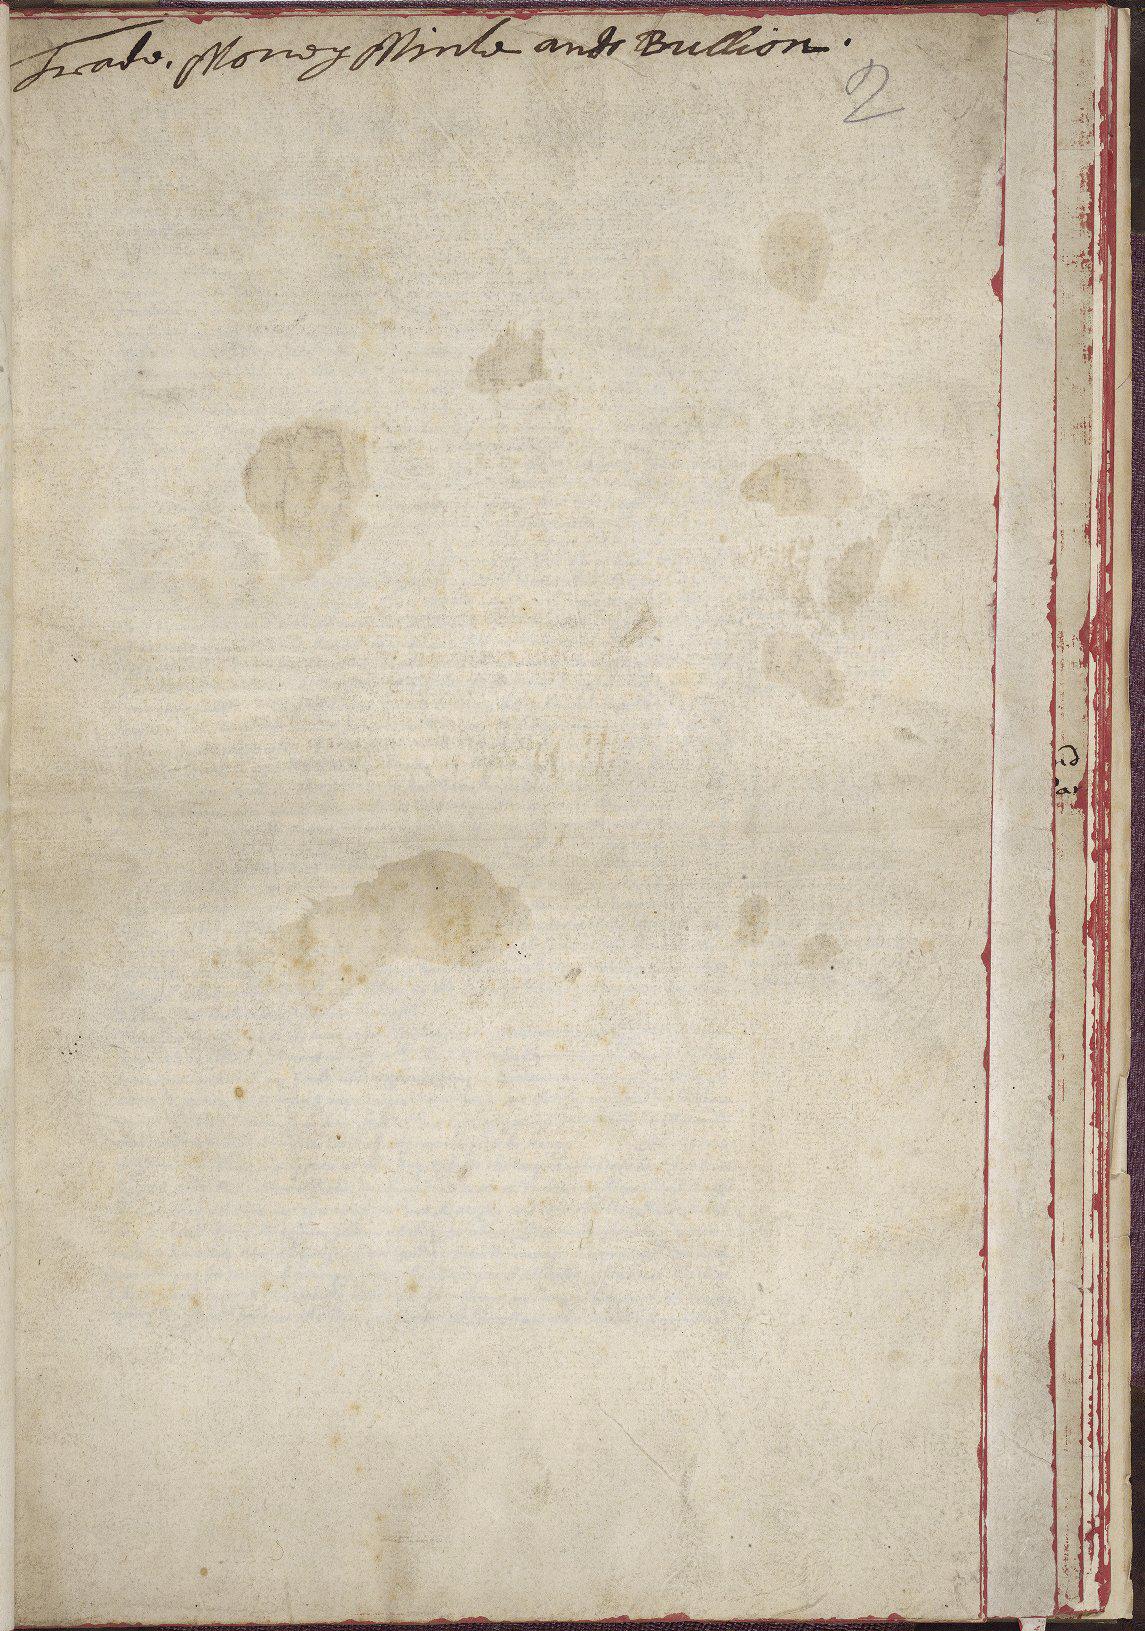 Trade. Money Minte and Bullion.
2
id
ar